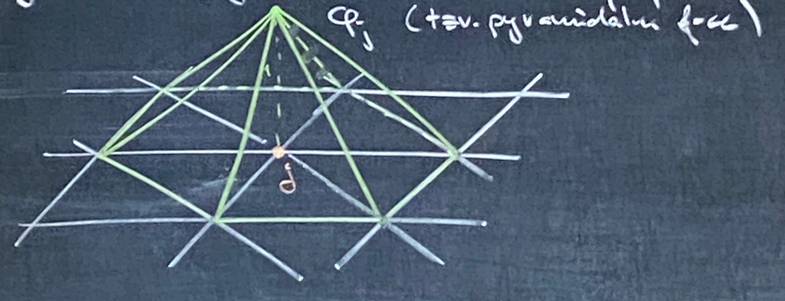 φ_j (tzv. pyramidální fce)
j